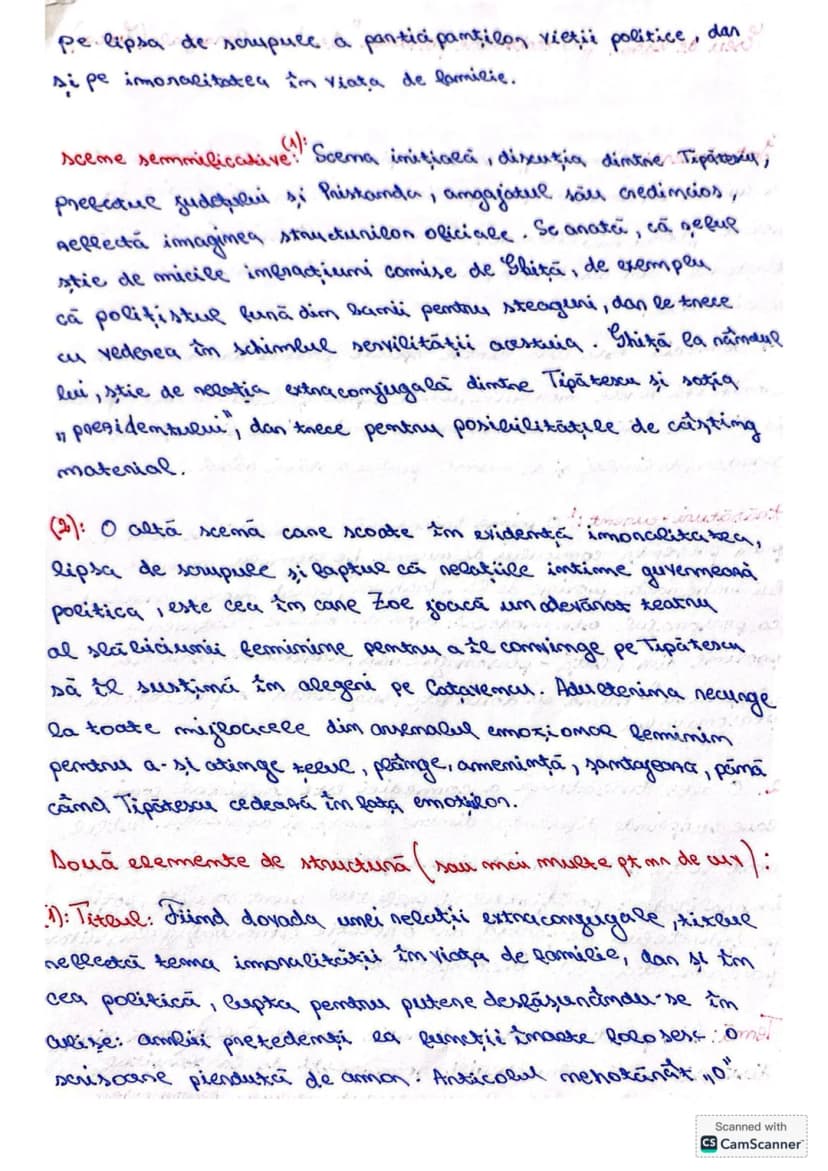 pe lipsa de scrupule a participanților vieții politice, dar
și pe imoralitatea în viața de familie.
scene semnificative: (1): Scena inițială, discuția dintre Tipătescu,
prefectul județului și Pristanda, angajatul său credincios,
reflectă imaginea structurilor oficiale. Se arată, că șeful
știe de micile infracțiuni comise de Ghiță, de exemplu
că polițistul fură din banii pentru steaguri, dar le trece
cu vederea în schimbul servilității acestuia. Ghiță la rândul
lui, știe de relația extraconjugală dintre Tipătescu și soția
„prezidentului", dar trece pentru posibilitățile de câșting
material.
(2): O altă scenă care scoate în evidență imoralitatea,
lipsa de scrupule și faptul că relațiile intime guvernează
politica, este cea în care Zoe joacă un adevărat teatru
al slăbiciunii feminine pentru a îl convinge pe Tipătescu
să îl susțină în alegeri pe Cațavencu. Adulterina recurge
la toate mijloacele din arsenalul emoțional feminin
pentru a-și atinge țelul, plânge, amenință, șantajează, până
când Tipătescu cedează în fața emoțiilor.
Două elemente de structură (sau mai multe pt nr de cuv):
1): Titlul: Fiind dovada unei relații extraconjugale, titlul
reflectă tema imoralității în viața de familie, dar și în
cea politică, lupta pentru putere desfășurându-se în
culise: ambii pretedenți la funcții înalte folosesc o
scrisoare pierdută de amor. Articolul nehotărât „O"
Scanned with
CS CamScanner